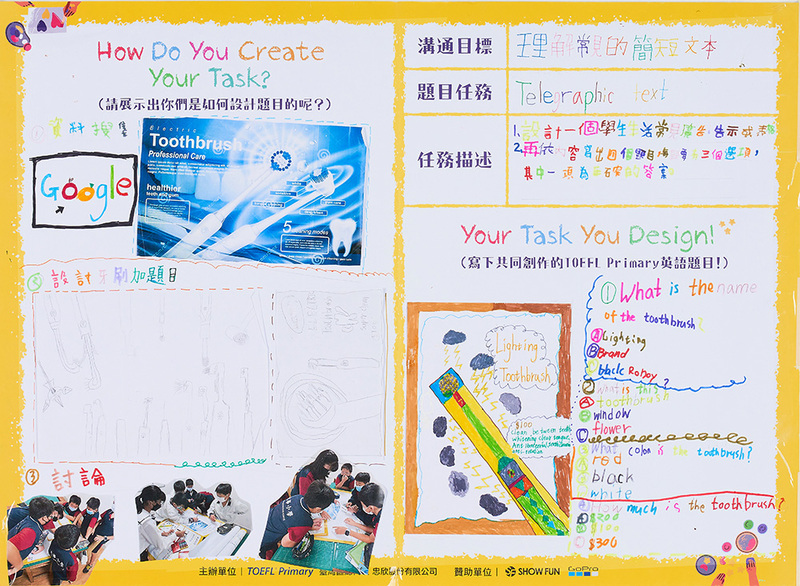 How Do You Create
Your Task?
(請展示出你們是如何設計題目的呢?)
① 資料搜集
Google
Electric
Toothbrush
Professional Care
healthier
teeth and gum
5 cleaning modes
② 設計牙刷加題目
③ 討論
溝通目標
理解常見的簡短文本
題目任務
Telegraphic text
任務描述
1. 設計一個學生生活常見
2. 再依
其中一項為
Your Task You Design!
(寫下共同創作的TOEFL Primary英語題目!)
Lighting
Toothbrush
$100
clean between teeth
① What is the name
of the toothbrush?
Ⓐ Lighting
Ⓑ Brand
black
What is this?
toothbrush
window
flower
What color is the toothbrush?
red
black
white
How much is the toothbrush?
$200
$100
$300
主辦單位 | TOEFL Primary 忠欣股份有限公司 贊助單位 | SHOW FUN GoPro